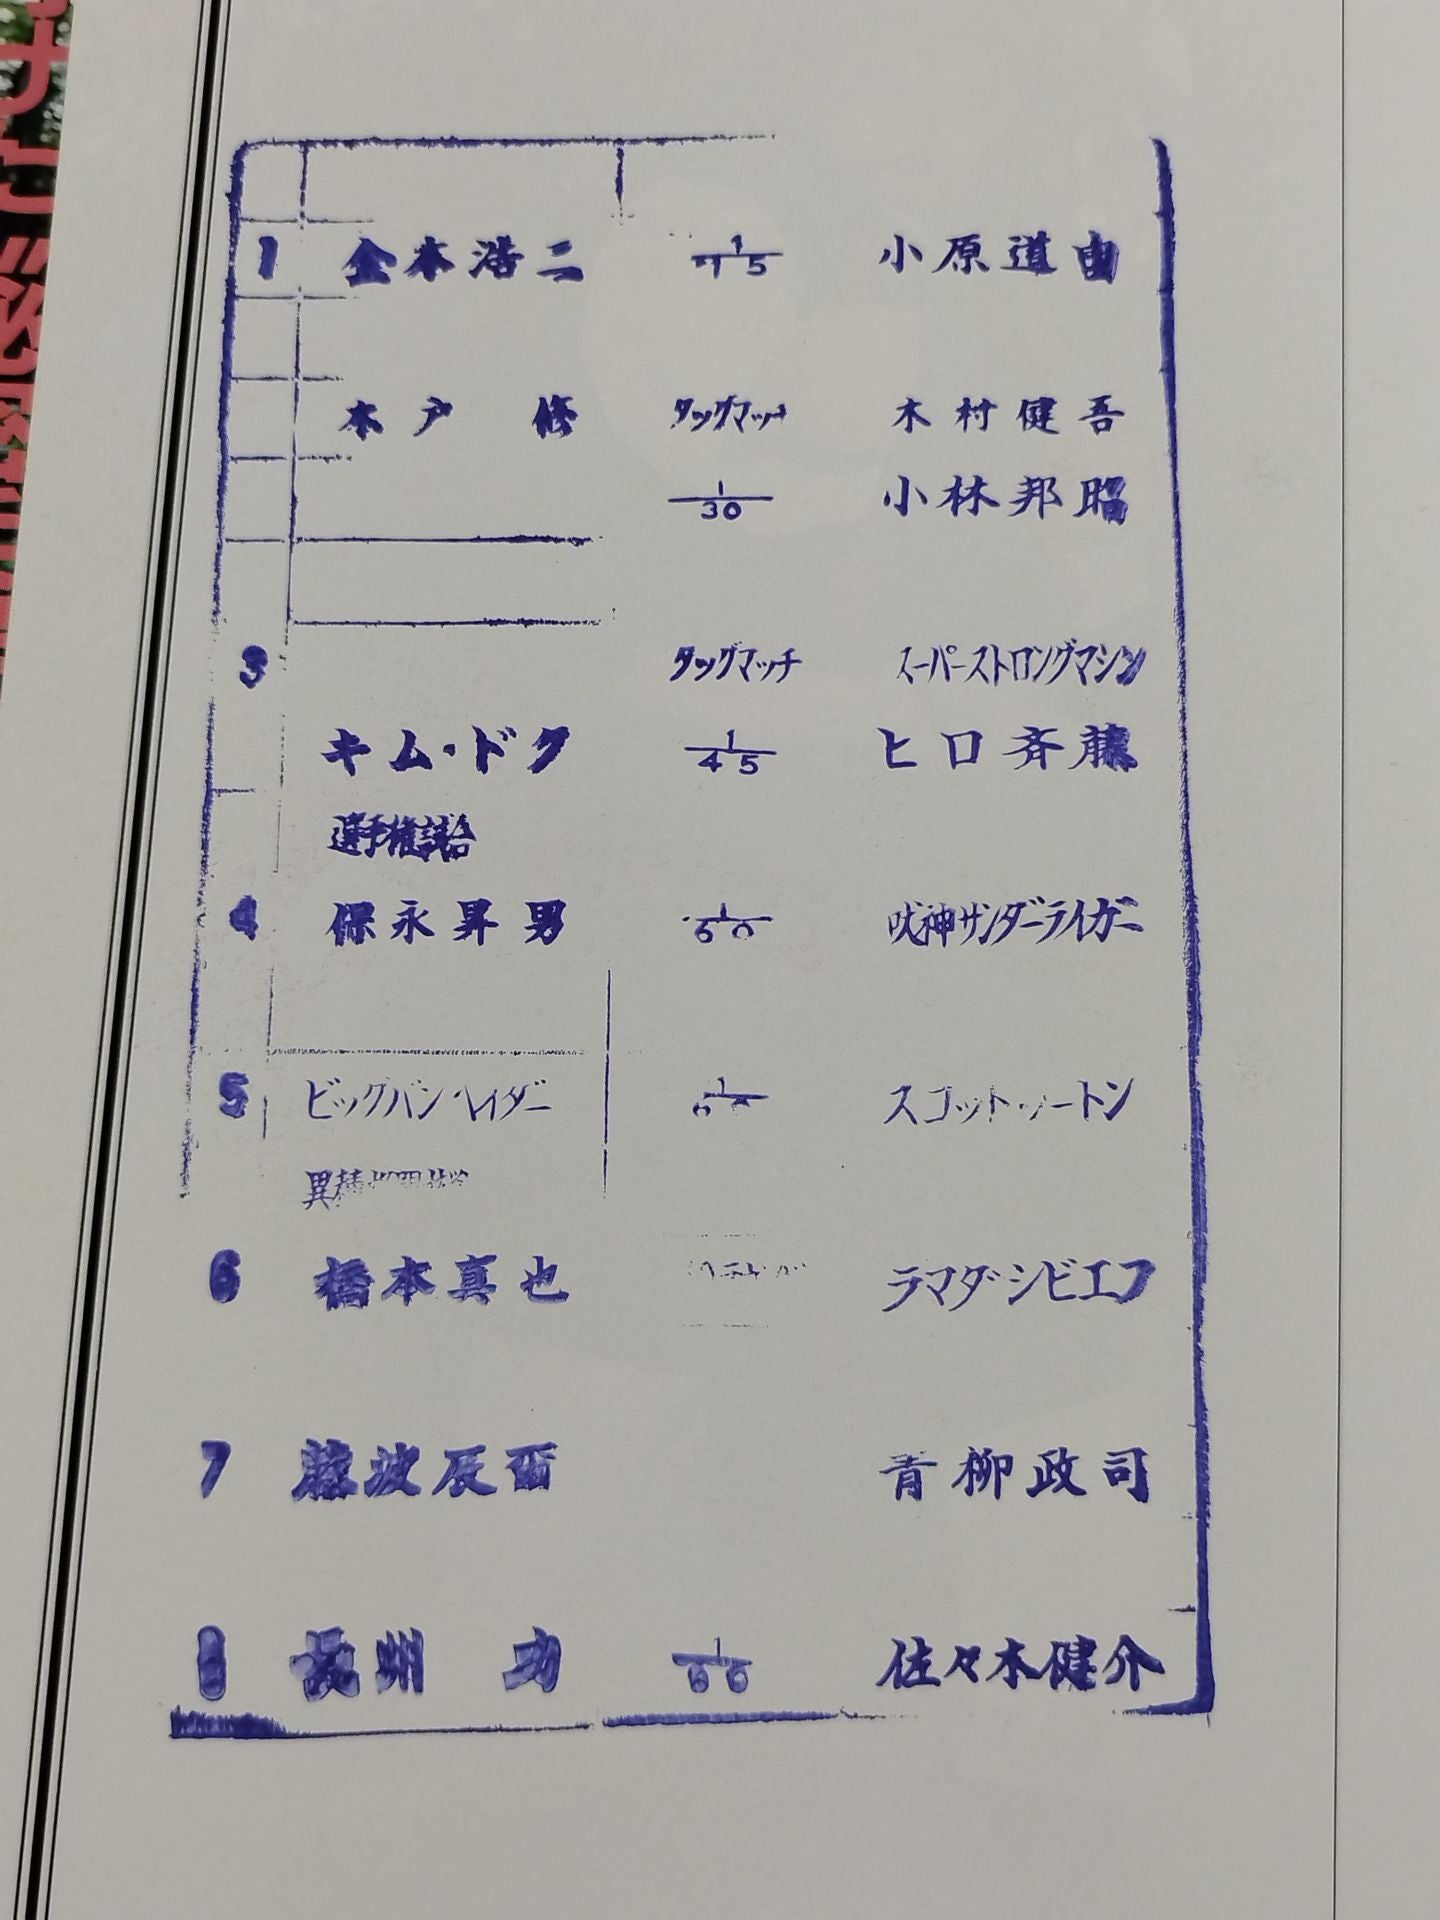 1 金本浩二 1/15 小原道由
木戸 修 タッグマッチ 木村健吾
1/30 小林邦昭
3 タッグマッチ スーパーストロングマシン
キム・ドク 1/45 ヒロ斉藤
選手権試合
4 保永昇男 1/60 獣神サンダーライガー
5 ビッグバン・ベイダー スコット・ノートン
6 橋本真也 ラマダ・シビエフ
7 藤波辰爾 青柳政司
8 長州 力 1/60 佐々木健介